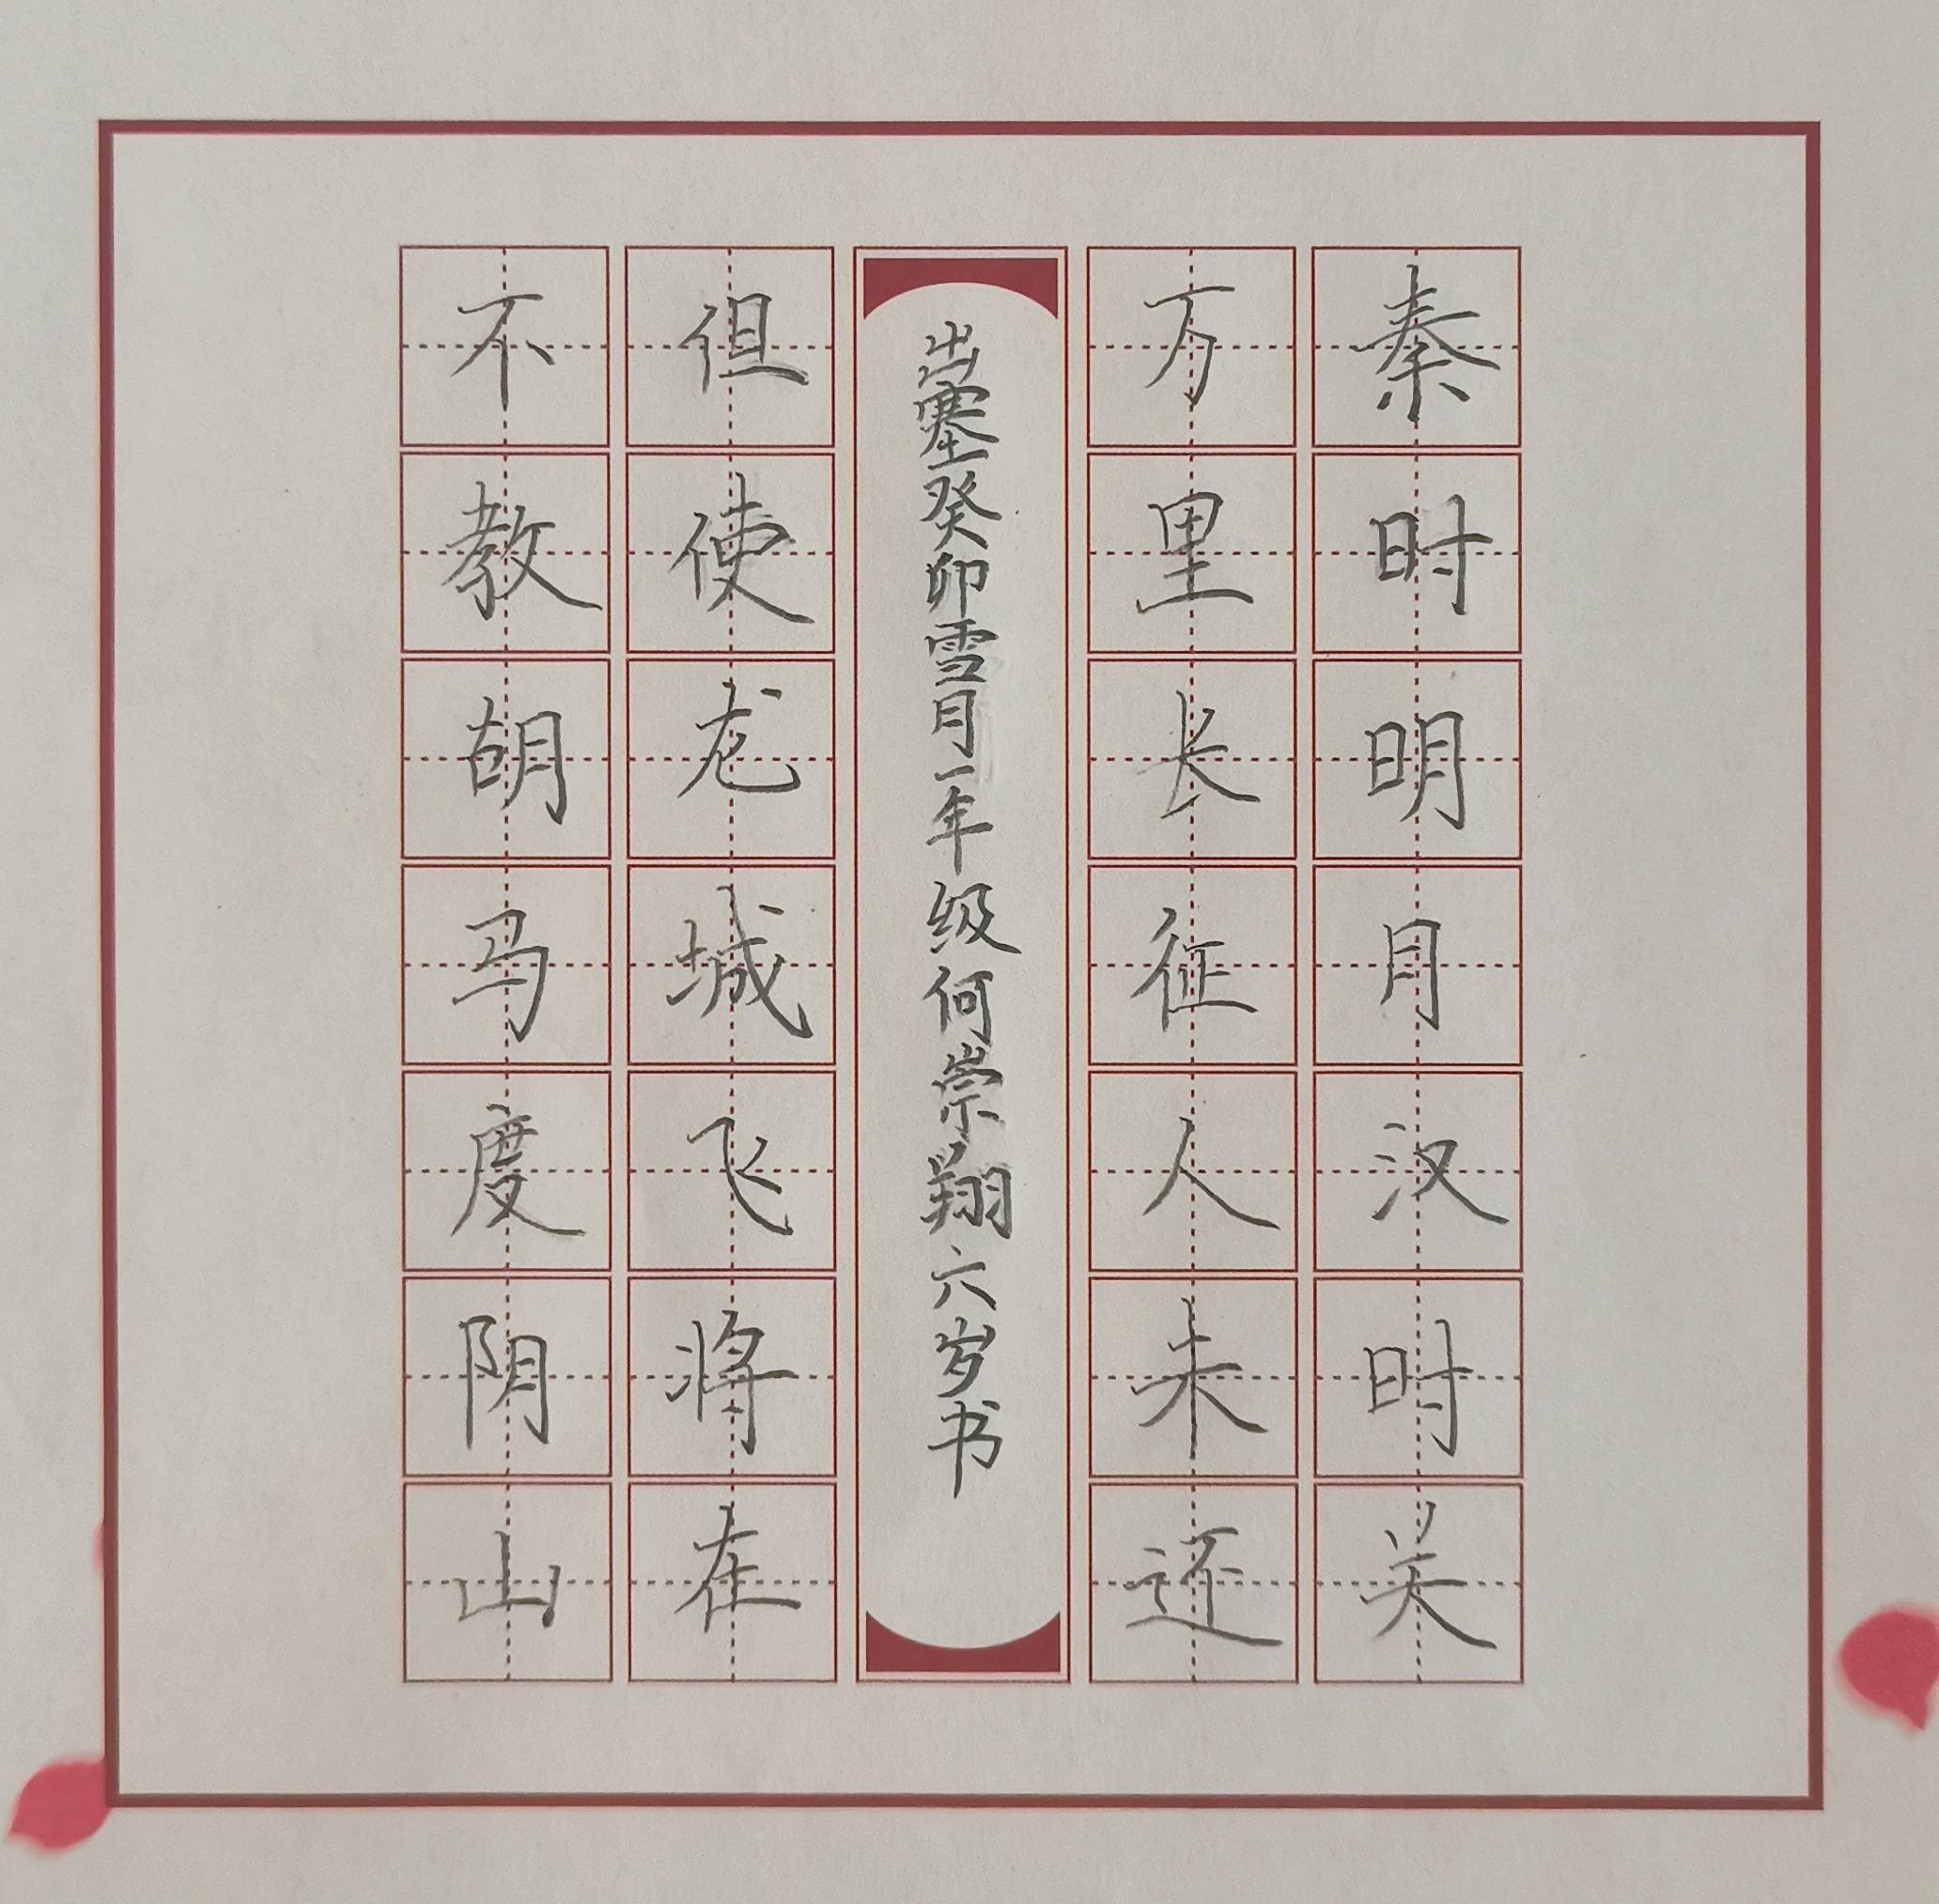 秦时明月汉时关
万里长征人未还
出塞癸卯雪月一年级何崇翔六岁书
但使龙城飞将在
不教胡马度阴山